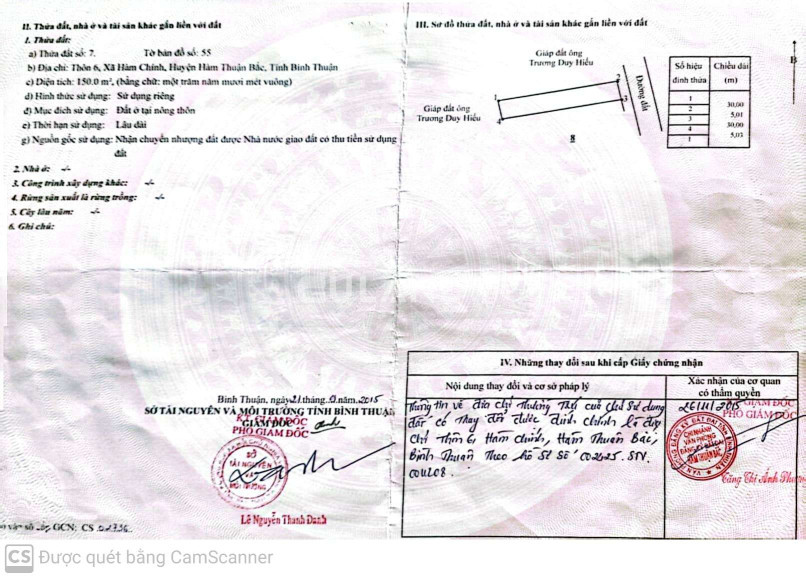 II. Thửa đất, nhà ở và tài sản khác gắn liền với đất
1. Thửa đất:
a) Thửa đất số: 7. Tờ bản đồ số: 55
b) Địa chỉ: Thôn 6, Xã Hàm Chính, Huyện Hàm Thuận Bắc, Tỉnh Bình Thuận
c) Diện tích: 150.0 m², (bằng chữ: một trăm năm mươi mét vuông)
d) Hình thức sử dụng: Sử dụng riêng
đ) Mục đích sử dụng: Đất ở tại nông thôn
e) Thời hạn sử dụng: Lâu dài
g) Nguồn gốc sử dụng: Nhận chuyển nhượng đất được Nhà nước giao đất có thu tiền sử dụng
đất
2. Nhà ở: -/-
3. Công trình xây dựng khác: -/-
4. Rừng sản xuất là rừng trồng: -/-
5. Cây lâu năm: -/-
6. Ghi chú:
Bình Thuận, ngày 21 tháng năm 2015
SỞ TÀI NGUYÊN VÀ MÔI TRƯỜNG TỈNH BÌNH THUẬN
KT. GIÁM ĐỐC
GIÁM ĐỐC
PHÓ GIÁM ĐỐC
SỞ
TÀI NGUYÊN
VÀ
MÔI TRƯỜNG
Lê Nguyễn Thanh Danh
GCN: CS
III. Sơ đồ thửa đất, nhà ở và tài sản khác gắn liền với đất
Giáp đất ông
Trương Duy Hiếu
Giáp đất ông
Trương Duy Hiếu
1
2
3
4
Đường đất
B
Số hiệu đỉnh thửa
Chiều dài (m)
1
30,00
2
5,01
3
30,00
4
5,03
1
IV. Những thay đổi sau khi cấp Giấy chứng nhận
Nội dung thay đổi và cơ sở pháp lý
Xác nhận của cơ quan
có thẩm quyền
Thông tin về địa chỉ thường trú của chủ sử dụng
đất có thay đổi được đính chính là địa
chỉ Thôn 6, Hàm Chính, Hàm Thuận Bắc,
Bình Thuận theo hồ sơ số
GIÁM ĐỐC
PHÓ GIÁM ĐỐC
CHI NHÁNH
VĂN PHÒNG
ĐĂNG KÝ ĐẤT ĐAI
HÀM THUẬN BẮC
Tăng Thị Ánh
CS Được quét bằng CamScanner